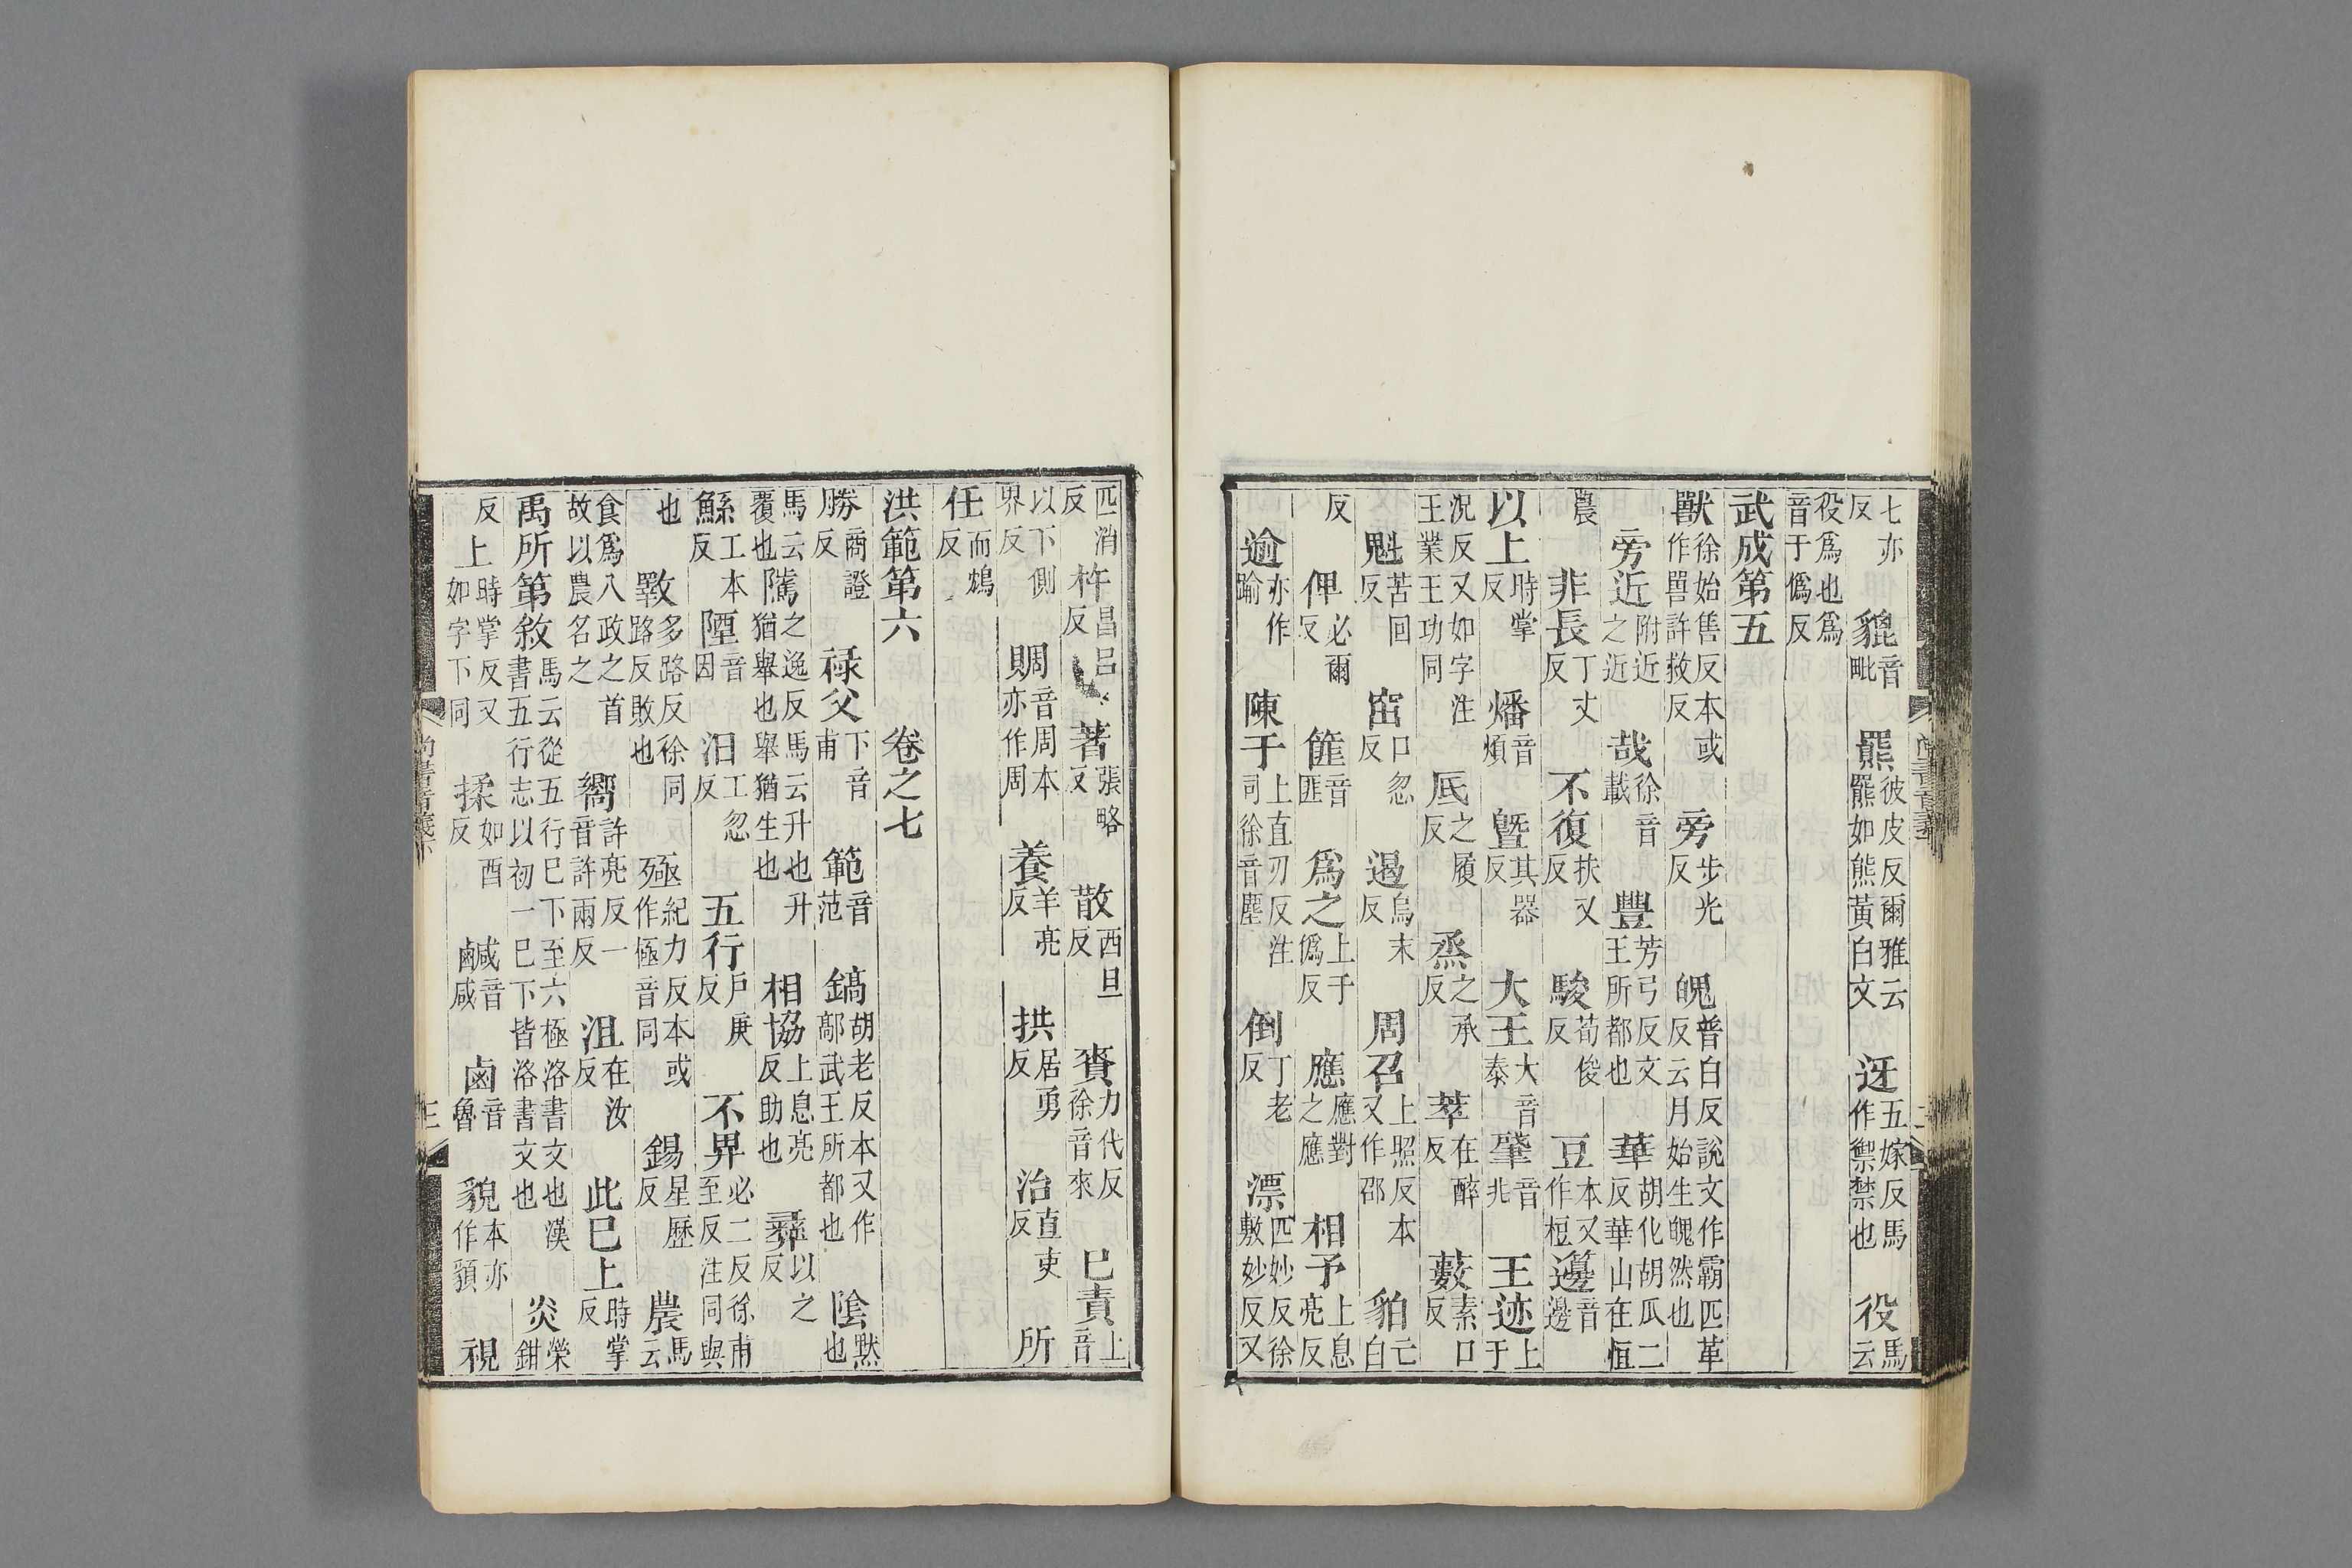 七亦反貔音毗羆彼皮反爾雅云羆如熊黃白文迓五嫁反馬作禦禁也役馬云
役爲也爲音于僞反
武成第五
獸徐始售反本或作嘼許救反旁步光反魄普白反說文作霸匹革反云月始生魄然也
旁近附近之近哉徐音載豐芳弓反文王所都也華胡化胡瓜二反華山在恒
農非長丁丈反不復扶又反駿荀俊反豆本又作梪籩音邊
以上時掌反燔音煩曁其器反大王大音泰肇音兆王迹上于
況反又如字注王業王功同厎之履反烝之承反萃在醉反藪素口反
魁苦回反窋口忽反遏烏末反周召上照反本又作邵貊亡白
反俾必爾反篚音匪爲之上于僞反應應對之應相予上息亮反
逾亦作踰陳于上直刃反注同徐音塵倒丁老反漂匹妙反徐敷妙反又
匹消反杵昌呂反著張略反散西旦反賚力代反徐音來已責上音
以下側界反賙音周本亦作周養羊亮反拱居勇反治直吏反所
任而鴆反
洪範第六 卷之七
勝商證反祿父下音甫範音范鎬胡老反本又作鄗武王所都也陰默也
馬云覆也騭之逸反馬云升也升猶舉也舉猶生也相協上息亮反助也彝以之反
鯀工本反陻音因汩工忽反五行戶庚反不畀必二反徐甫至反注同與
也斁多路反徐同路反敗也殛紀力反本或作極音同錫星歷反農馬云
食爲八政之首故以農名之嚮許亮反一音許兩反沮在汝反此已上時掌反
禹所第敘馬云從五行已下至六極洛書文也漢書五行志以初一已下皆洛書文也炎榮鉗
反上時掌反又如字下同揉如酉反鹹音咸鹵音魯貌本亦作䫉視
尚書音義下 三